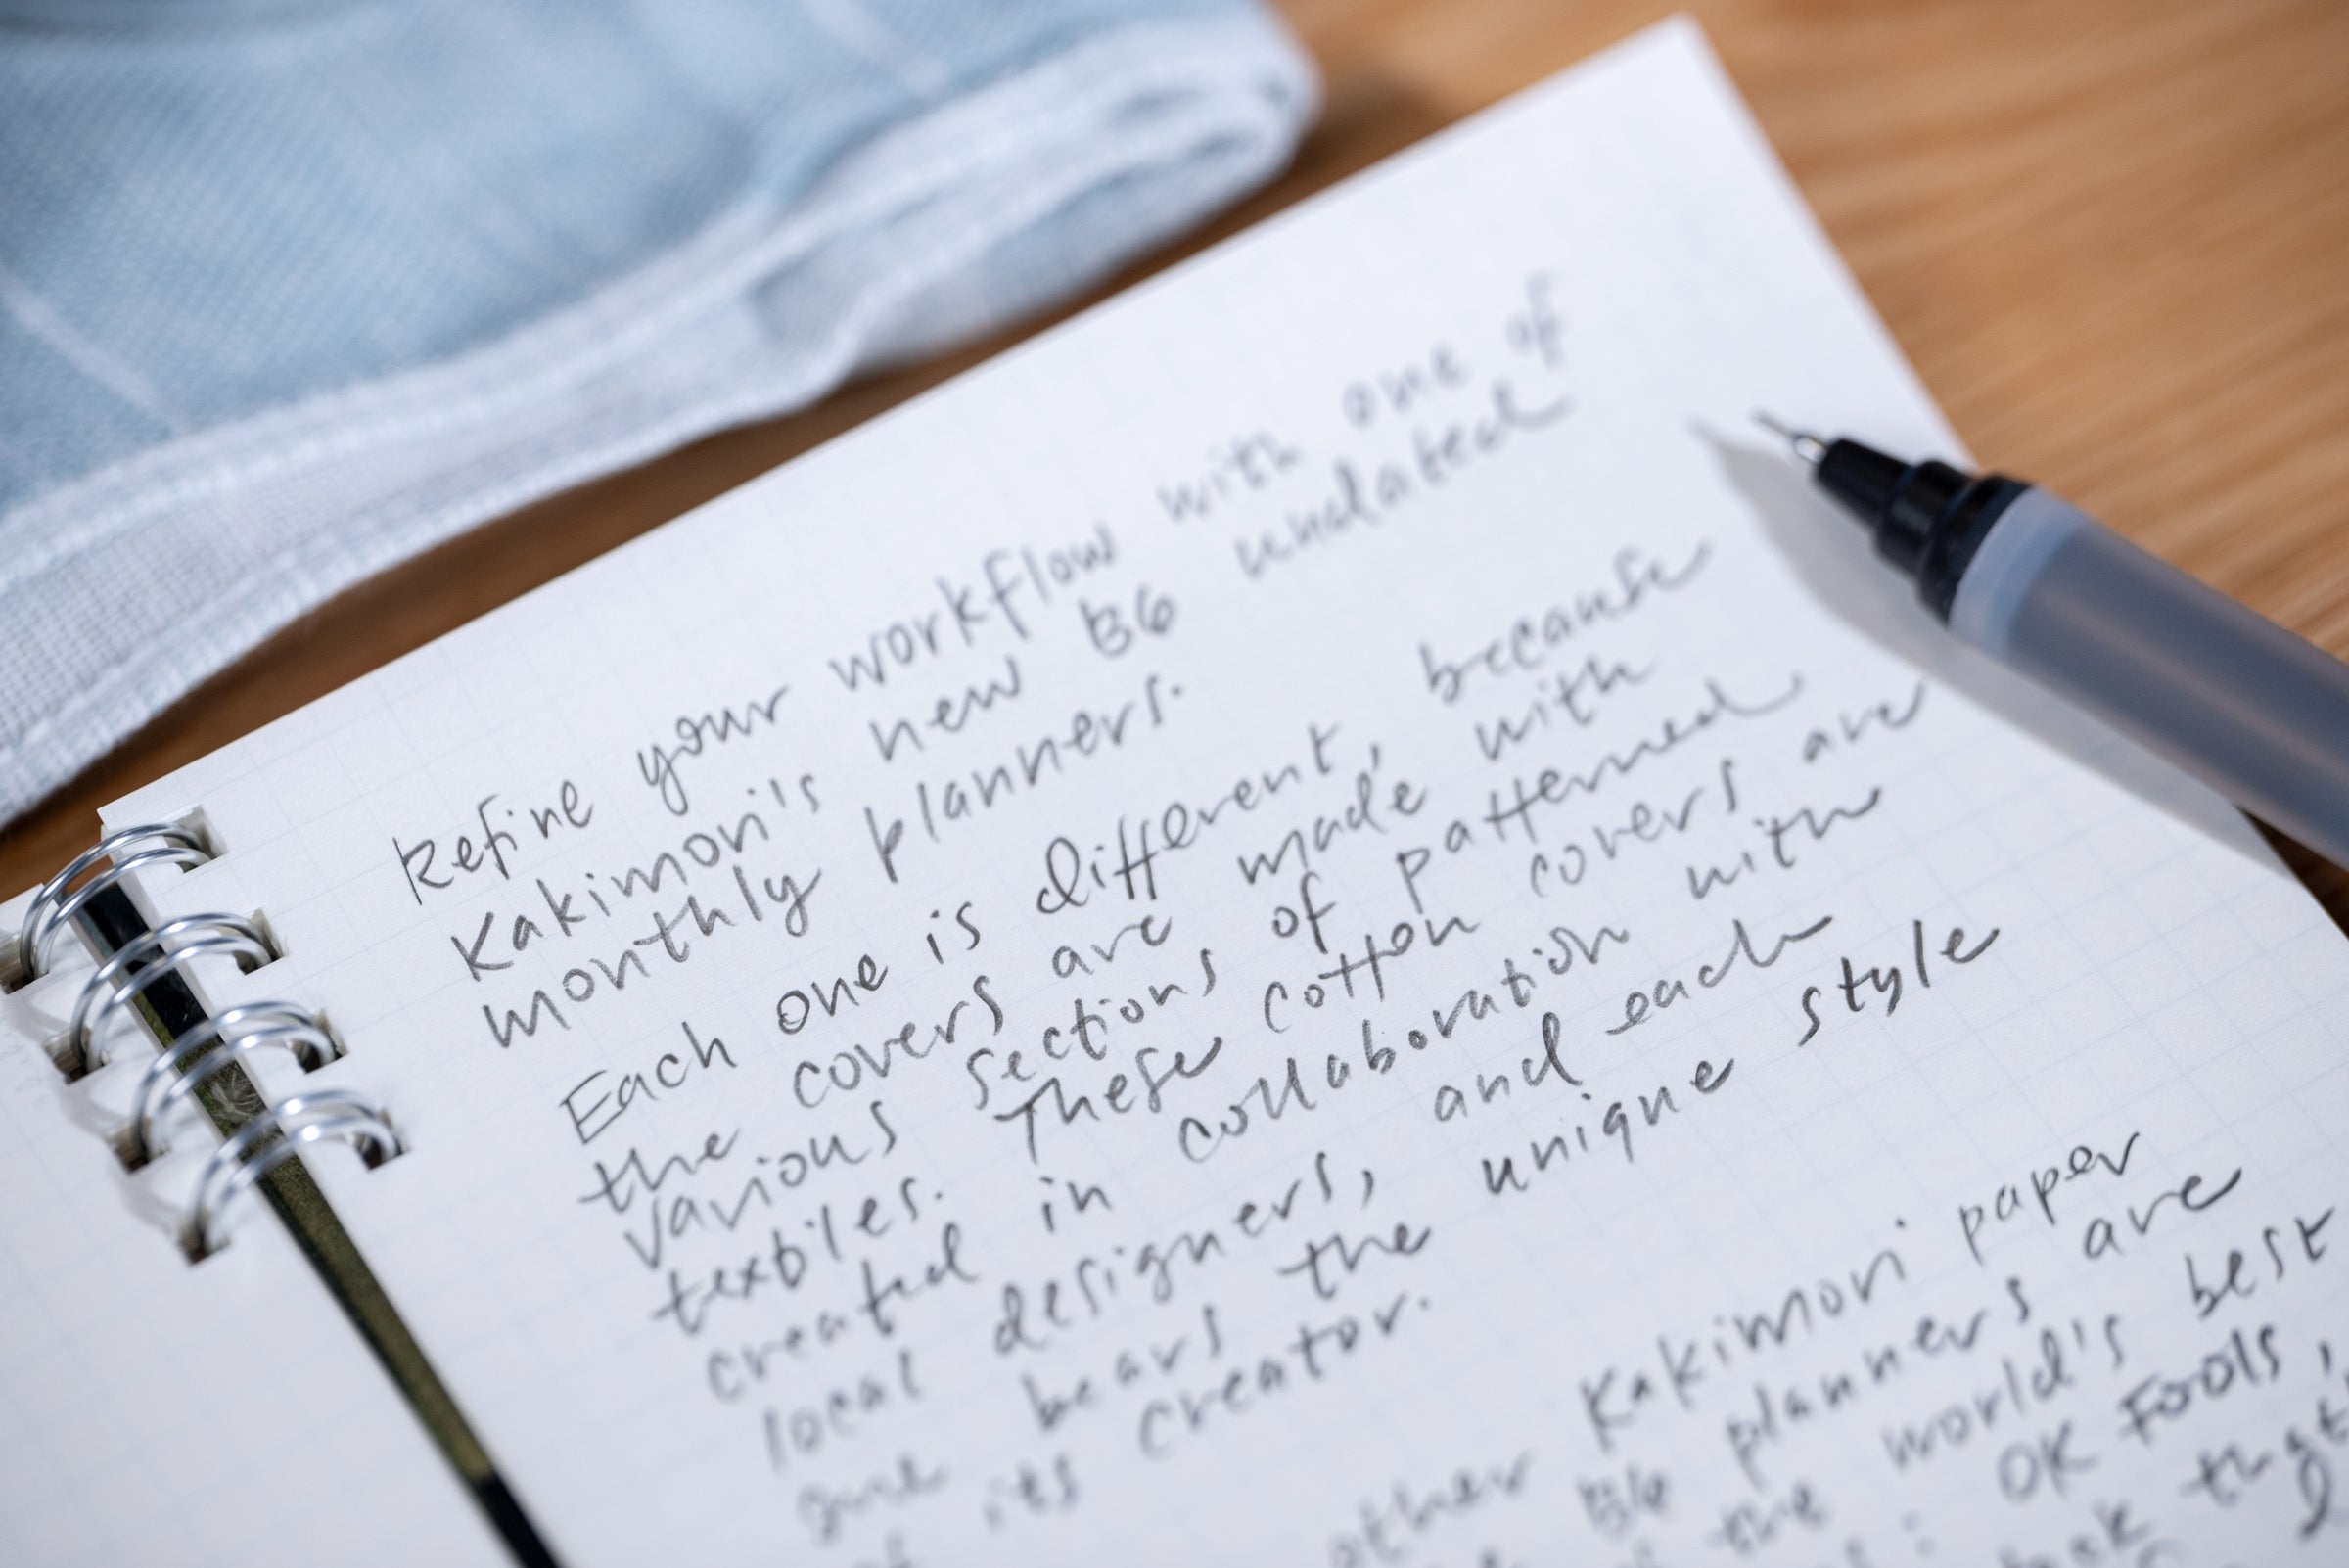 Refine your workflow with one of
Kakimori's new B6 undated
monthly planners.
Each one is different, because
the covers are made with
various sections of patterned
textiles. These cotton covers are
created in collaboration with
local designers, and each
one bears the unique style
of its creator.
other Kakimori paper
B6 planners are
the world's best
: OK Fools,